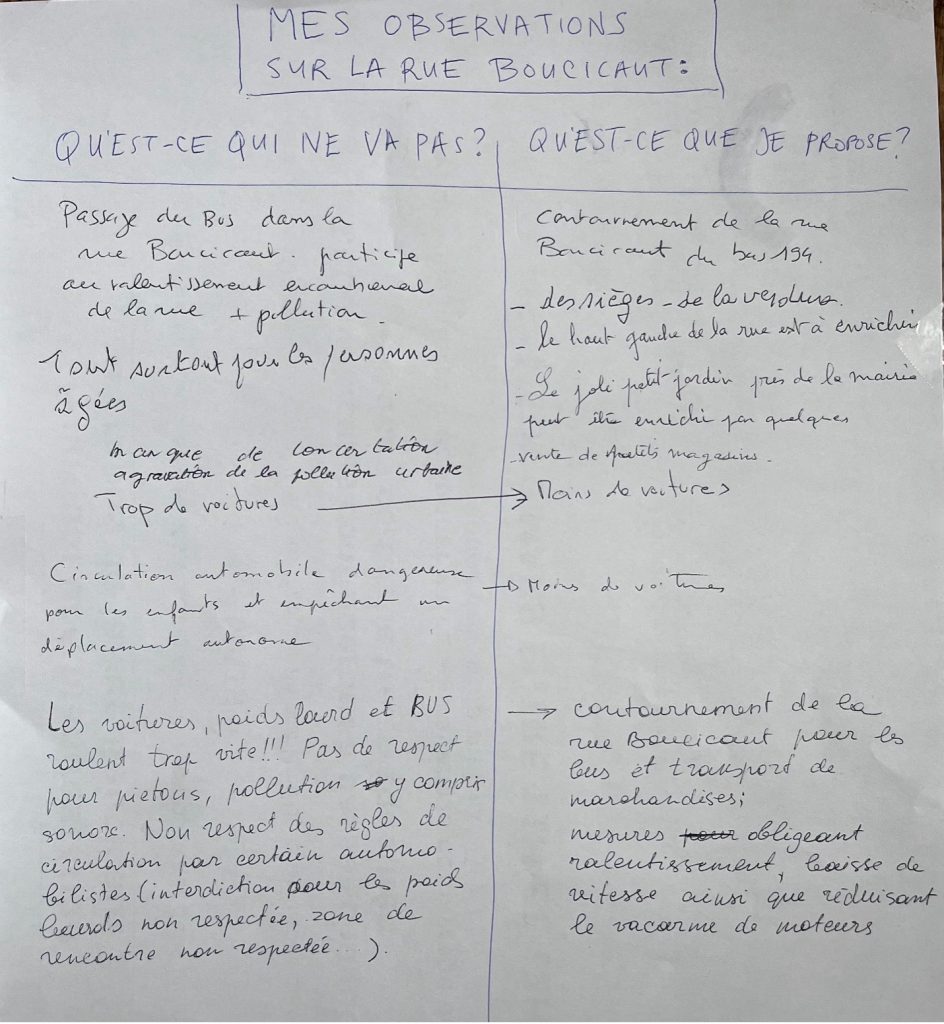 MES OBSERVATIONS
SUR LA RUE BOUCICAUT:
QU'EST-CE QUI NE VA PAS?
Passage du Bus dans la
rue Boucicaut. participe
au ralentissement
de la rue + pollution.
Tout surtout pour les personnes
âgées
manque de concertation
agravation de la pollution urbaine
Trop de voitures
Circulation automobile dangereuse
pour les enfants et empêchant un
déplacement autonome
Les voitures, poids lourd et BUS
roulent trop vite!!! Pas de respect
pour piétons, pollution y compris
sonore. Non respect des règles de
circulation par certain automo-
bilistes (interdiction pour les poids
lourds non respectée, zone de
rencontre non respectée...).
QU'EST-CE QUE JE PROPOSE?
Contournement de la rue
Boucicaut du bus 194.
- des sièges - de la verdure.
- le haut gauche de la rue est à enrichir
- Le joli petit jardin près de la mairie
peut être enrichi par quelques
- vente de petits magasins.
→ Moins de voitures
→ Moins de voitures
→ contournement de la
rue Boucicaut pour les
bus et transport de
marchandises;
mesures obligeant
ralentissement, baisse de
vitesse ainsi que réduisant
le vacarme de moteurs